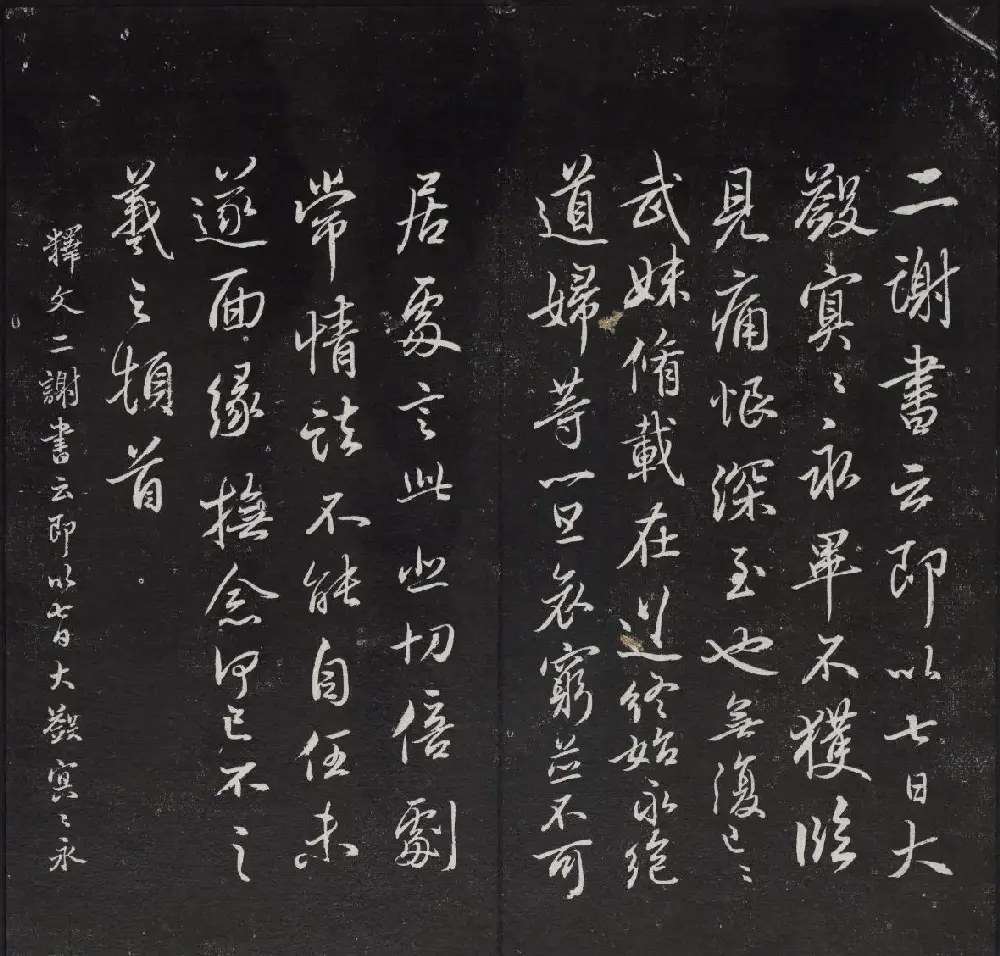 二謝書云即以七日大
斂冥冥永畢不獲臨
見痛恨深至也無復已已
武妹脩載在道終始永絕
道婦等一旦哀窮並不可
居處言此悲切倍劇
常情諸不能自任未
遂面緣撫念何已不之
羲之頓首
釋文二謝書云即以七日大斂冥冥永